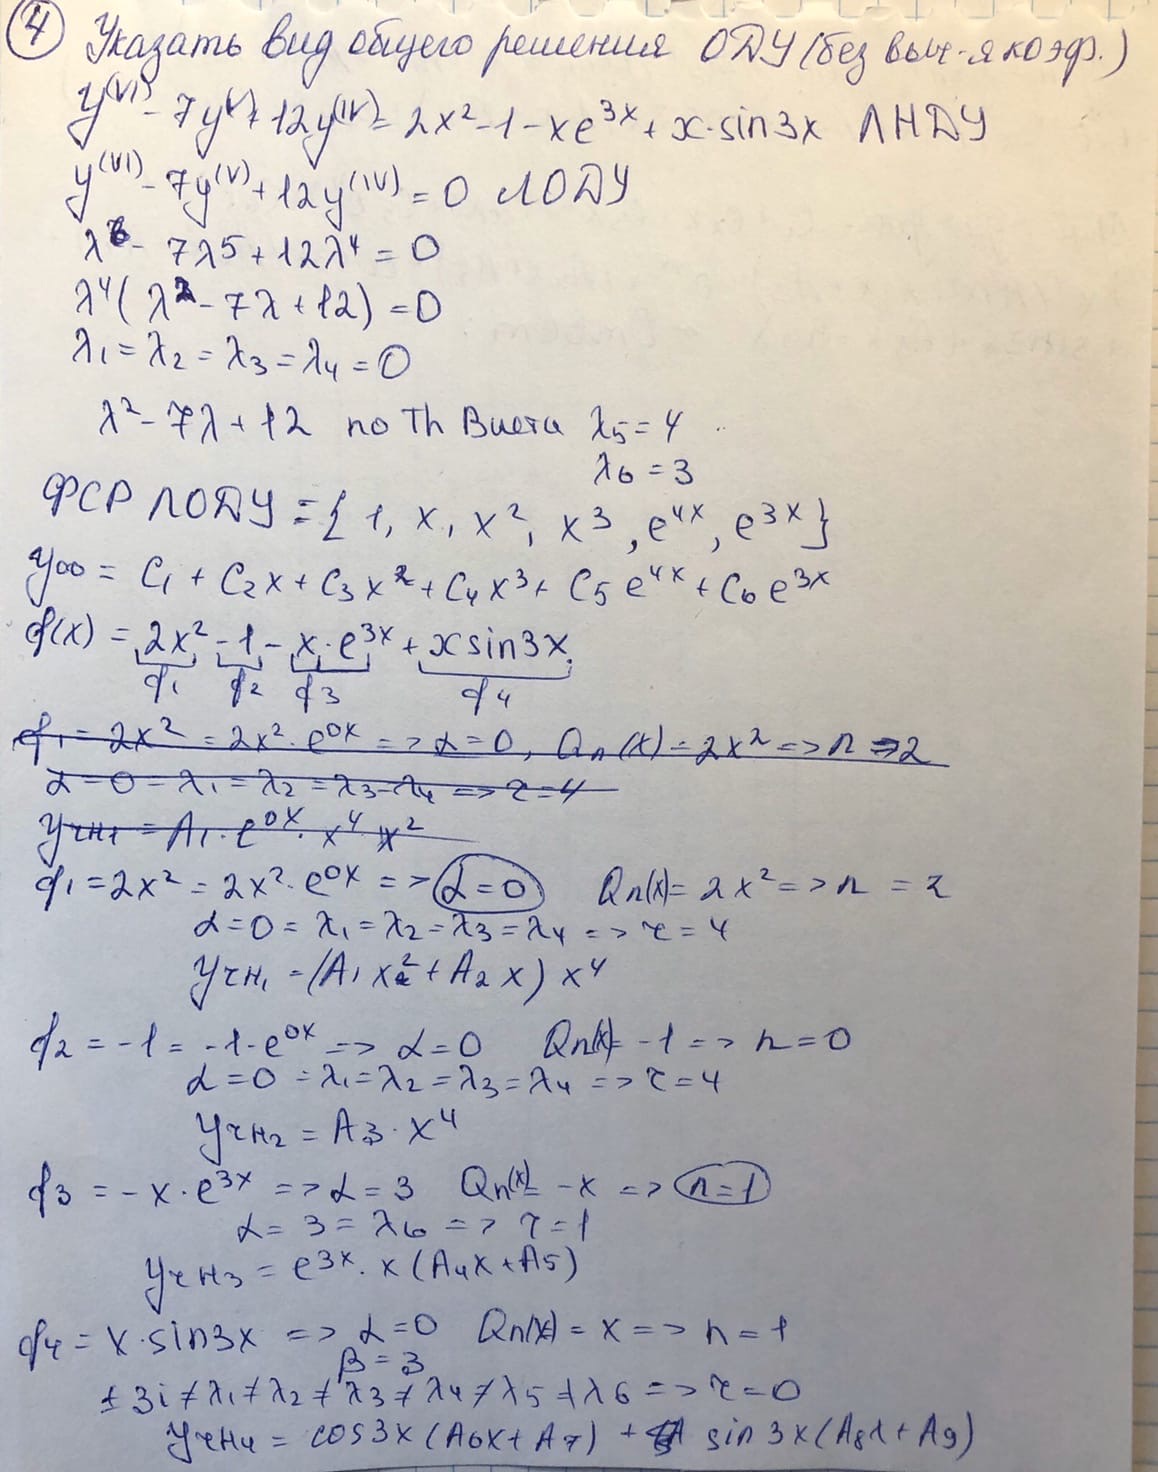 ④ Указать вид общего решения ОДУ (без выч-я коэф.)
y^(VI) - 7y^(V) + 12y^(IV) = 2x² - 1 - xe^3x + x·sin3x ЛНДУ
y^(VI) - 7y^(V) + 12y^(IV) = 0 ЛОДУ
λ^6 - 7λ5 + 12λ⁴ = 0
λ⁴(λ² - 7λ + 12) = 0
λ₁ = λ₂ = λ₃ = λ₄ = 0
λ² - 7λ + 12 по Th Виета λ₅ = 4
λ₆ = 3
ФСР ЛОДУ = {1, x, x², x³, e^4x, e^3x}
yoo = C₁ + C₂x + C₃x² + C₄x³ + C₅e^4x + C₆e^3x
f(x) = 2x² - 1 - x·e^3x + x sin3x
f₁ f₂ f3 f4
f₁ = 2x² = 2x²·e^0x => α=0, Qn(x) = 2x² => n => 2
α = 0 = λ₁ = λ₂ = λ₃ = λ₄ => r = 4
yчн₁ = A₁·e^0x·x⁴ x²
f₁ = 2x² = 2x²·e^0x => α=0 Qn(x) = 2x² => n = 2
α = 0 = λ₁ = λ₂ = λ₃ = λ₄ => r = 4
yчн₁ = (A₁x² + A₂x) x⁴
f₂ = -1 = -1·e^0x => α=0 Qn(x) = -1 => n=0
α = 0 = λ₁ = λ₂ = λ₃ = λ₄ => r = 4
yчн₂ = A₃·x⁴
f₃ = -x·e^3x => α = 3 Qn(x) = -x => n=1
α = 3 = λ₆ => r = 1
yчн₃ = e^3x·x(A₄x + A₅)
f₄ = x·sin3x => α=0 Qn(x) = x => n = 1
β = 3
±3i ≠ λ₁ ≠ λ₂ ≠ λ₃ ≠ λ₄ ≠ λ₅ ≠ λ₆ => r = 0
yчн₄ = cos3x(A₆x + A₇) + sin3x(A₈x + A₉)